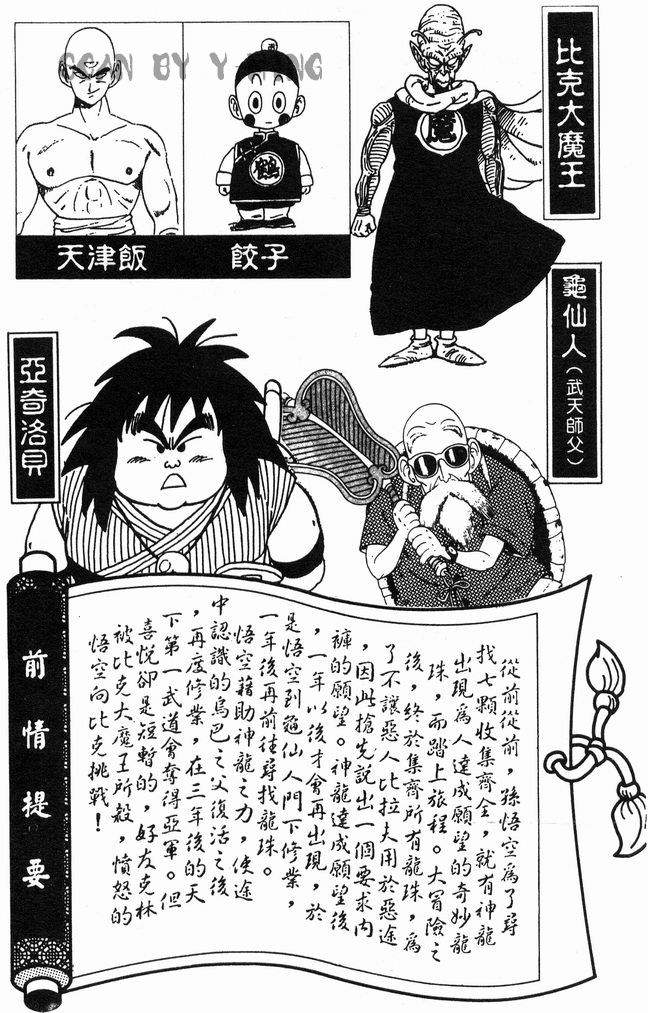 SCAN BY Y TANG
天津飯
餃子
鶴
魔
比克大魔王
龜仙人（武天師父）
亞奇洛貝
前情提要
從前從前，孫悟空爲了尋
找七顆收集齊全，就有神龍
出現爲人達成願望的奇妙龍
珠，而踏上旅程。大冒險之
後，終於集齊所有龍珠，爲
了不讓惡人比拉夫用於惡途
，因此搶先說出一個要求內
褲的願望。神龍達成願望後
，一年以後才會再出現，於
是悟空到龜仙人門下修業，
一年後再前往尋找龍珠。
悟空藉助神龍之力，使途
中認識的烏巴之父復活之後
，再度修業，在三年後的天
下第一武道會奪得亞軍。但
喜悅卻是短暫的，好友克林
被比克大魔王所殺，憤怒的
悟空向比克挑戰！